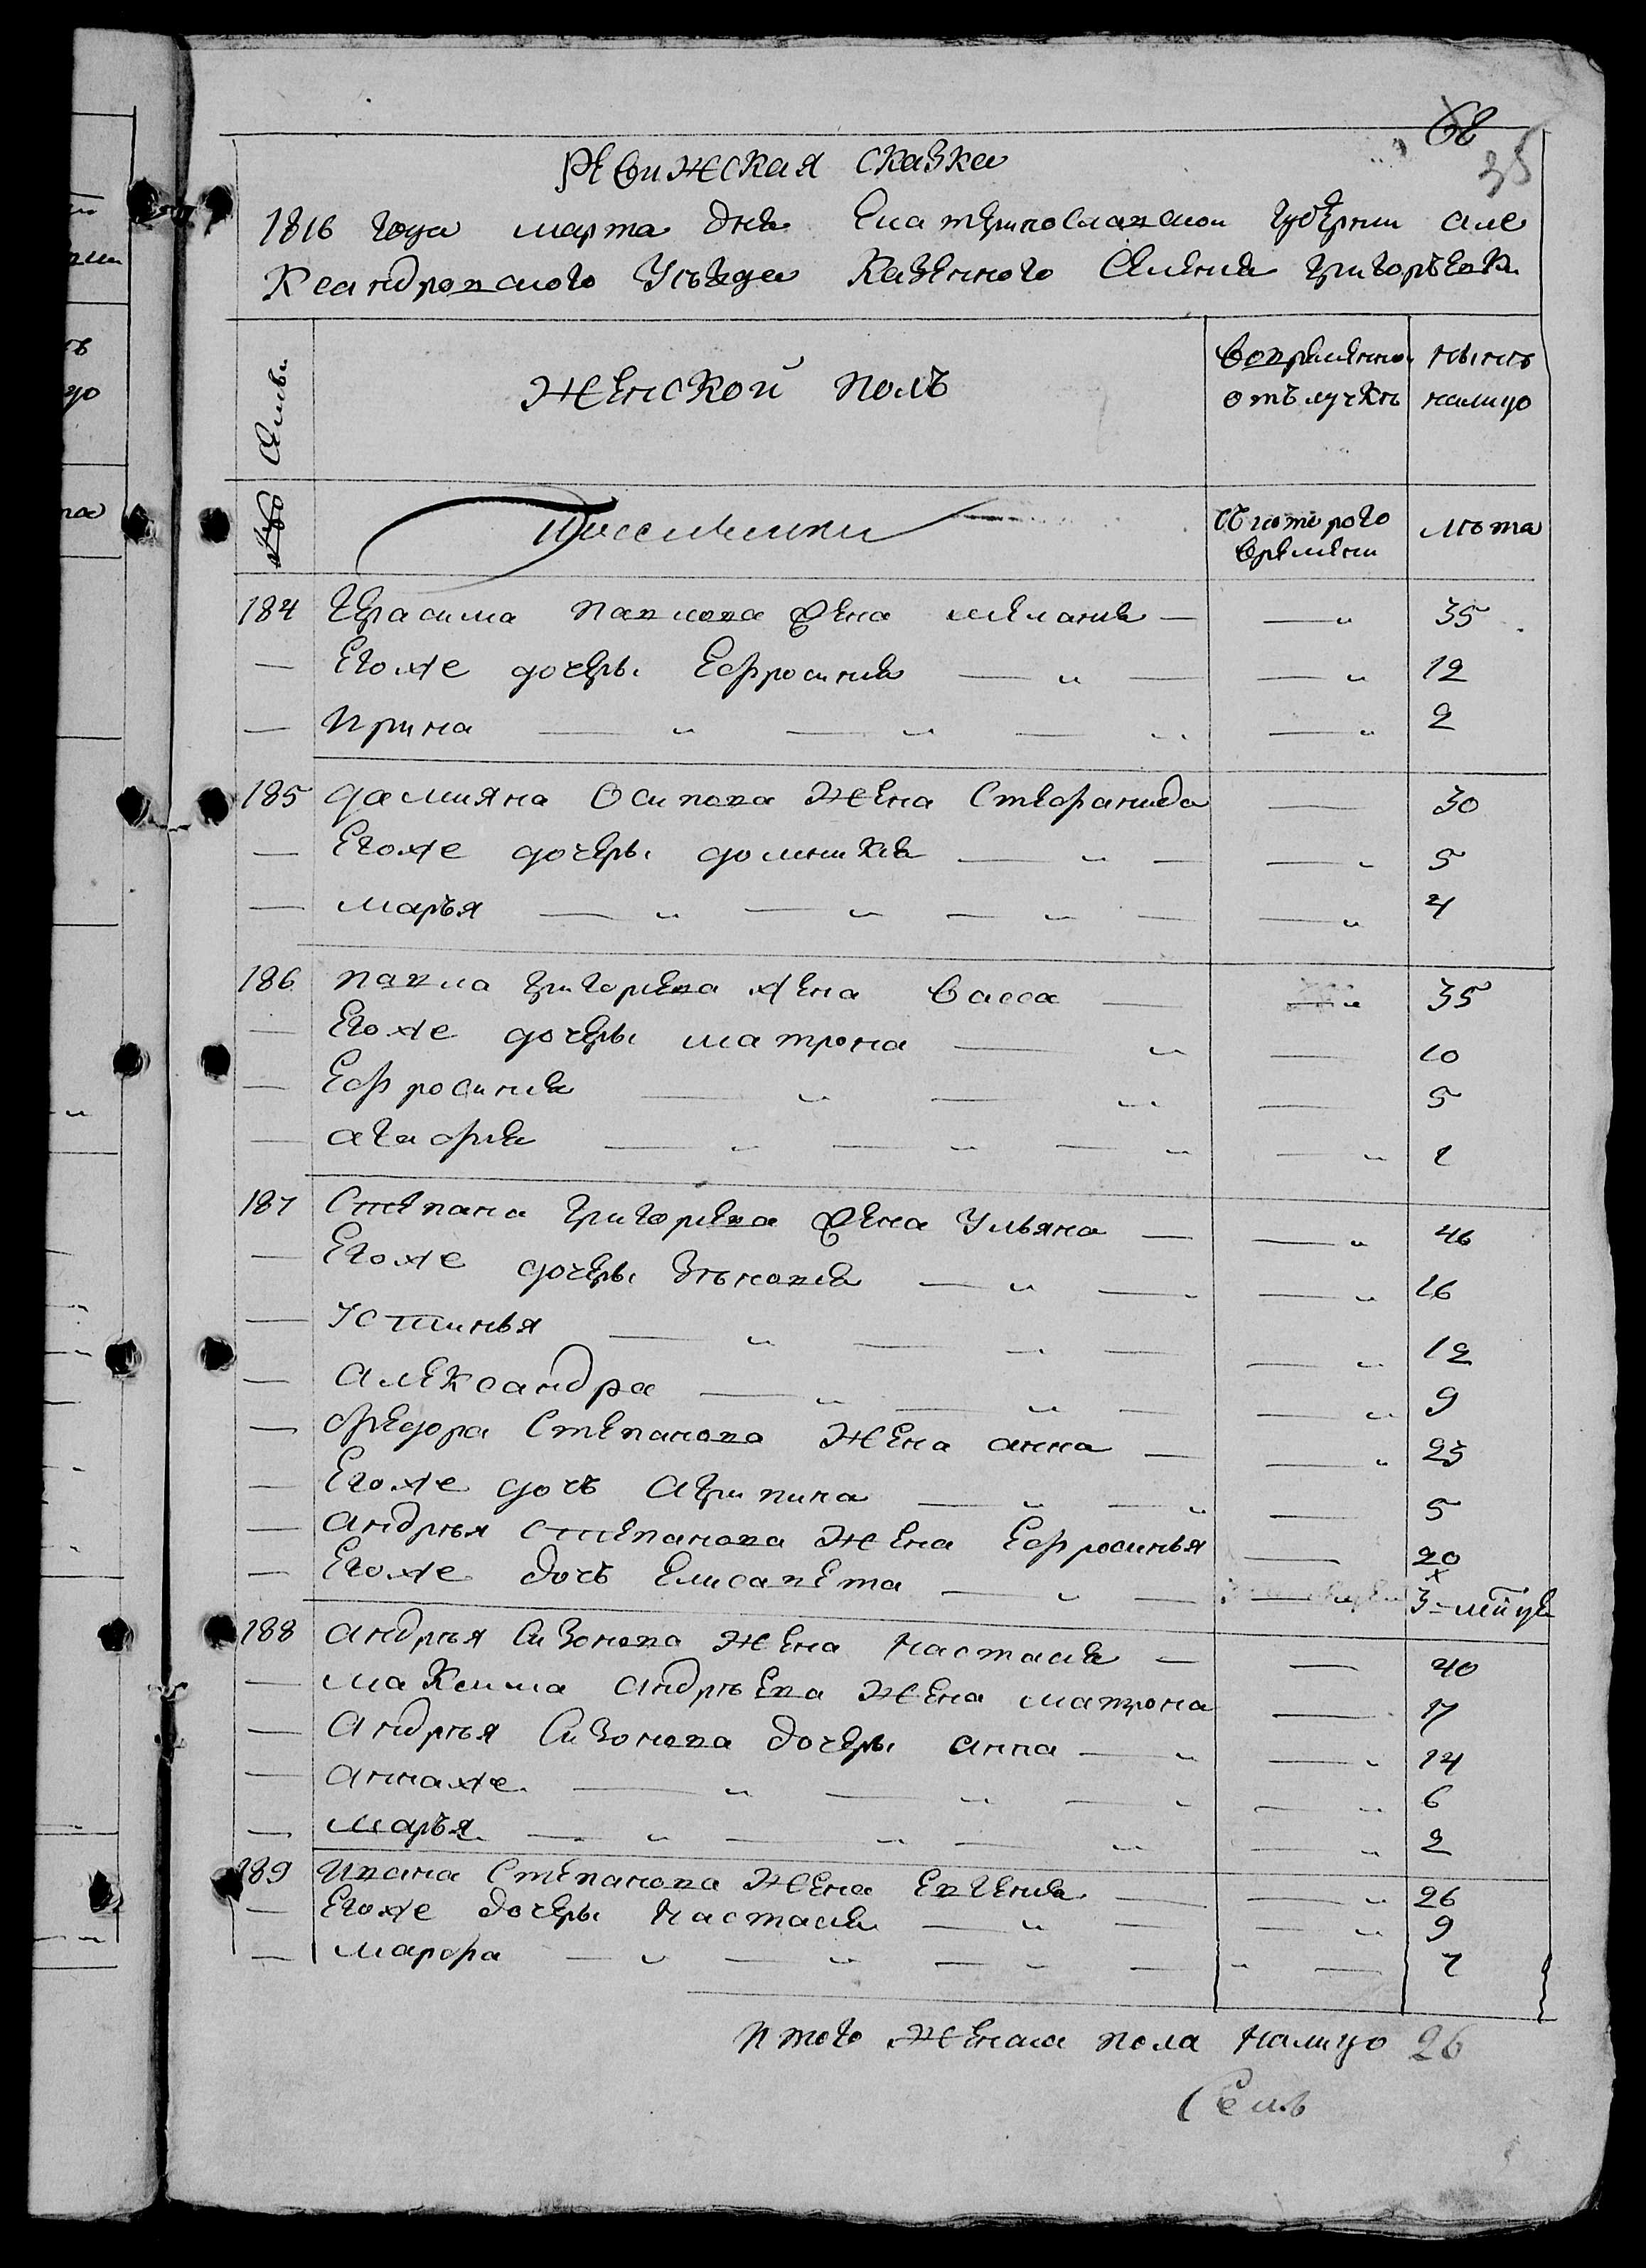 68
35
Ревижская сказка
1816 года марта дня Екатеринославской губернии Але
ксандровского уезда казенного селения Григорьевки
Семьи
Женской полъ
Вовременной отълучкъ
ныне налицо
№
Съ которого времени
лета
184 Герасима Павлова жена мелания — — 35
— Егоже дочери Ефросиния — — 12
— Ирина — — 2
185 Дамияна Осипова жена Стефанида — 30
— Егоже дочери домникия — — 5
— маръя — — 4
186 Павла Григорева жена Васса — — 35
— Егоже дочери матрона — — 10
— Ефросиния — — 5
— агафия — — 1
187 Степана Григорева жена Ульяна — — 46
— Егоже дочери Зѣновия — — 16
— Устинья — — 12
— Александра — — 9
— Федора Степанова жена анна — — 25
— Егоже дочъ Агрипина — — 5
— андрѣя степанова жена Ефросинья — 20
— Егоже дочъ Елисавета — — 3
188 андрѣя Сизонова жена настасия — — 40
— максима андрѣева жена матрона — 17
— Андрѣя Сизонова дочери анна — — 14
— аннаже — — 6
— маръя — — 2
189 Ивана Степанова жена Евгения — — 26
— Егоже дочери настасия — — 9
— марфа — — 7
Итого женска пола налицо 26